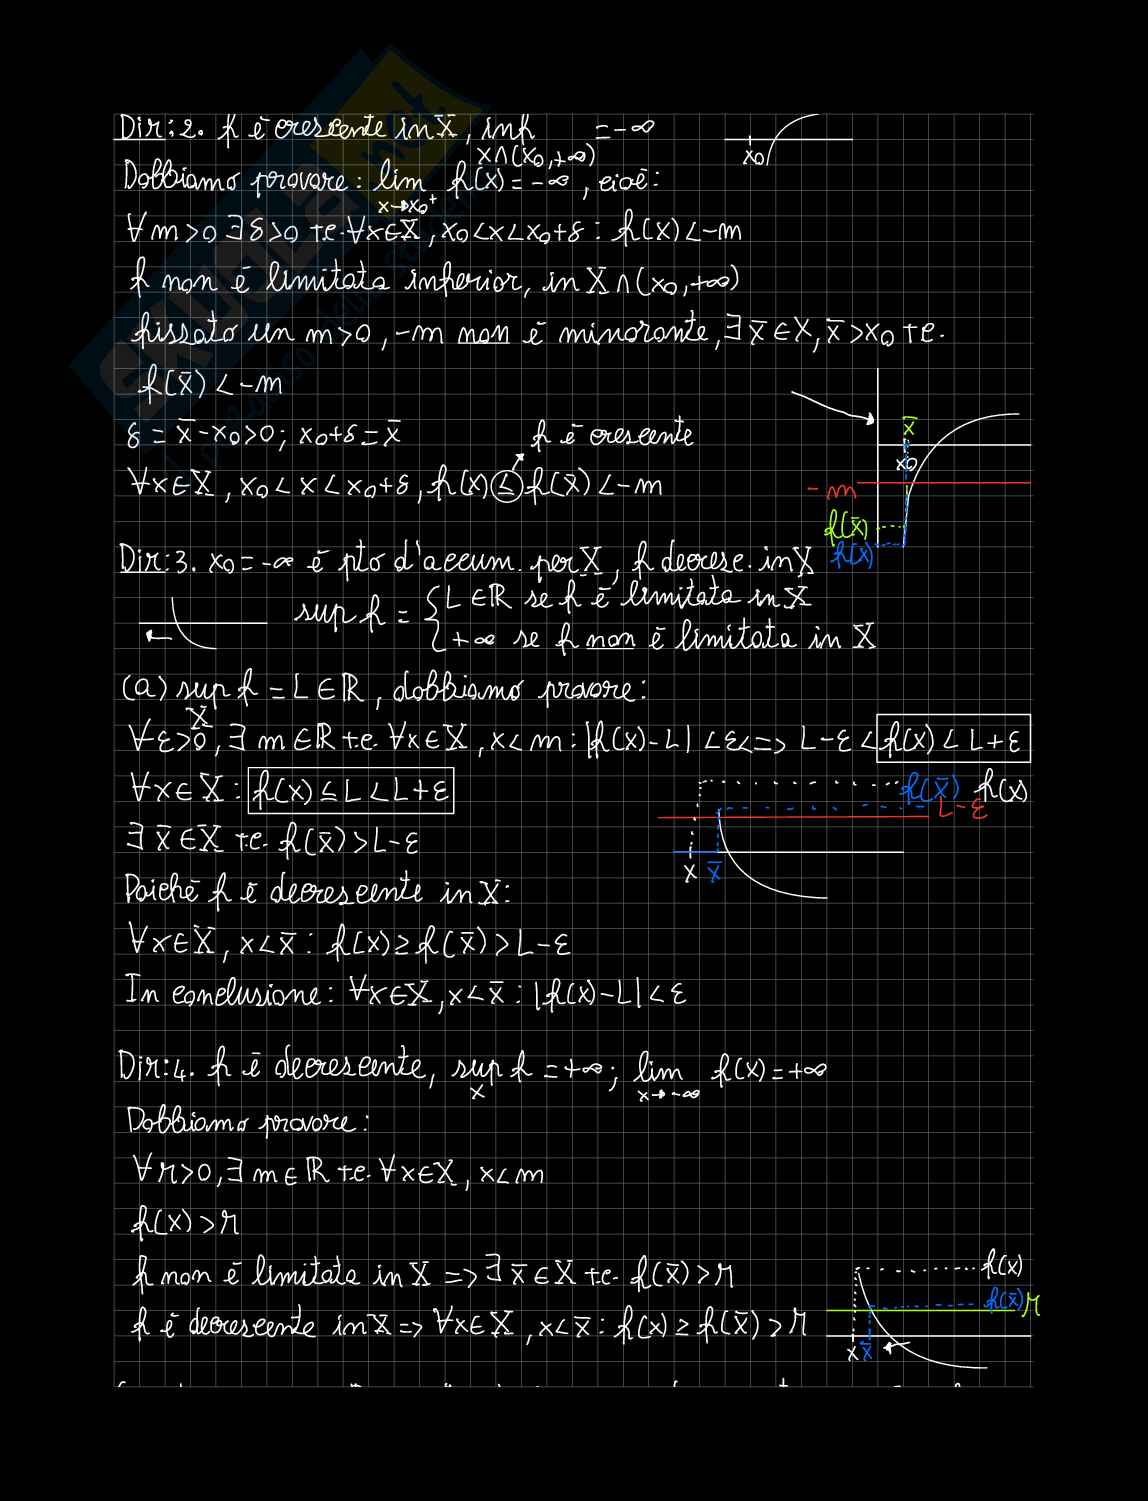 Dim:2. f è crescente in X, inf = -∞
X∩(x₀,+∞)
x₀
Dobbiamo provare: lim f(x) = -∞, cioè:
x→x₀⁺
∀m>0 ∃δ>0 t.c. ∀x∈X, x₀<x<x₀+δ : f(x)<-m
f non è limitata inferior, in X∩(x₀,+∞)
fissato un m>0, -m non è minorante, ∃x̄∈X, x̄>x₀ t.c.
f(x̄)<-m
δ = x̄-x₀>0; x₀+δ=x̄
f è crescente
∀x∈X, x₀<x<x₀+δ, f(x)≤f(x̄)<-m
x̄
x₀
-m
f(x̄)
f(x)
Dim:3. x₀=-∞ è pto d'accum. per X, f decresc. in X
sup f = { L∈ℝ se f è limitata in X
+∞ se f non è limitata in X
(a) sup f = L∈ℝ, dobbiamo provare:
X
∀ε>0, ∃m∈ℝ t.c. ∀x∈X, x<m : |f(x)-L|<ε <=> L-ε<f(x)<L+ε
∀x∈X : f(x)≤L<L+ε
f(x̄) f(x)
L-ε
x x̄
∃x̄∈X t.c. f(x̄)>L-ε
Poiché f è decrescente in X:
∀x∈X, x<x̄ : f(x)≥f(x̄)>L-ε
In conclusione: ∀x∈X, x<x̄ : |f(x)-L|<ε
Dim:4. f è decrescente, sup f = +∞; lim f(x)=+∞
X x→-∞
Dobbiamo provare:
∀r>0, ∃m∈ℝ t.c. ∀x∈X, x<m
f(x)>r
f non è limitata in X => ∃x̄∈X t.c. f(x̄)>r
f è decrescente in X => ∀x∈X, x<x̄ : f(x)≥f(x̄)>r
f(x)
f(x̄) r
x x̄